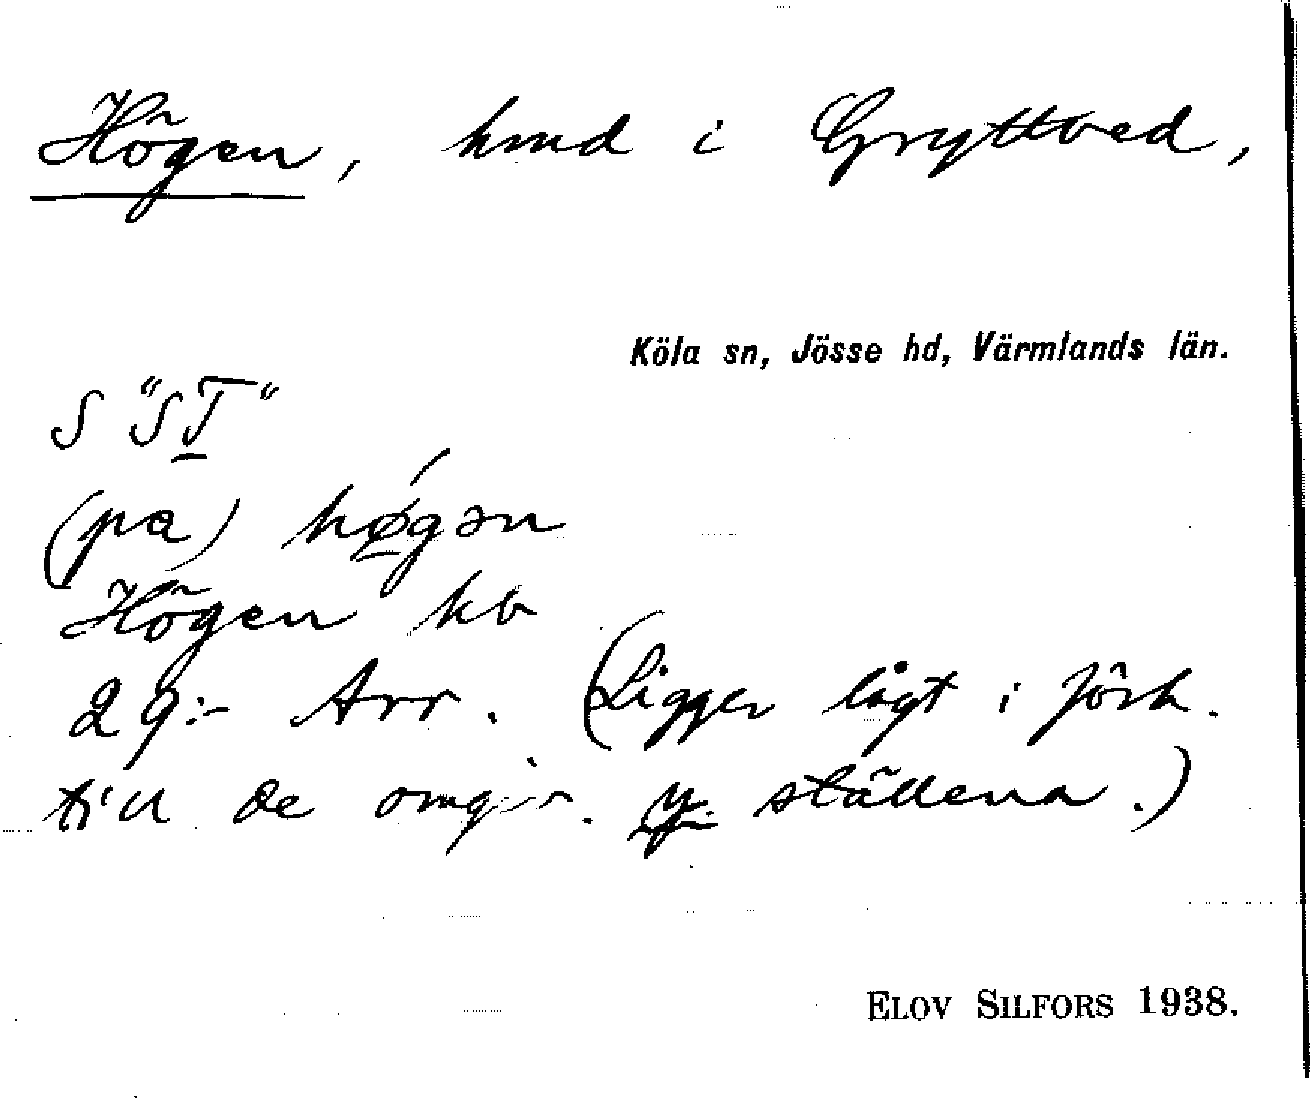 Högen, hmd i Gryttved,
Köla sn, Jösse hd, Värmlands län.
S "ST"
(pa) hǿ̱gən
Högen kb
29:- Arr. (Ligger lågt i förh.
till de omgiv. ställena.)
ELOV SILFORS 1938.